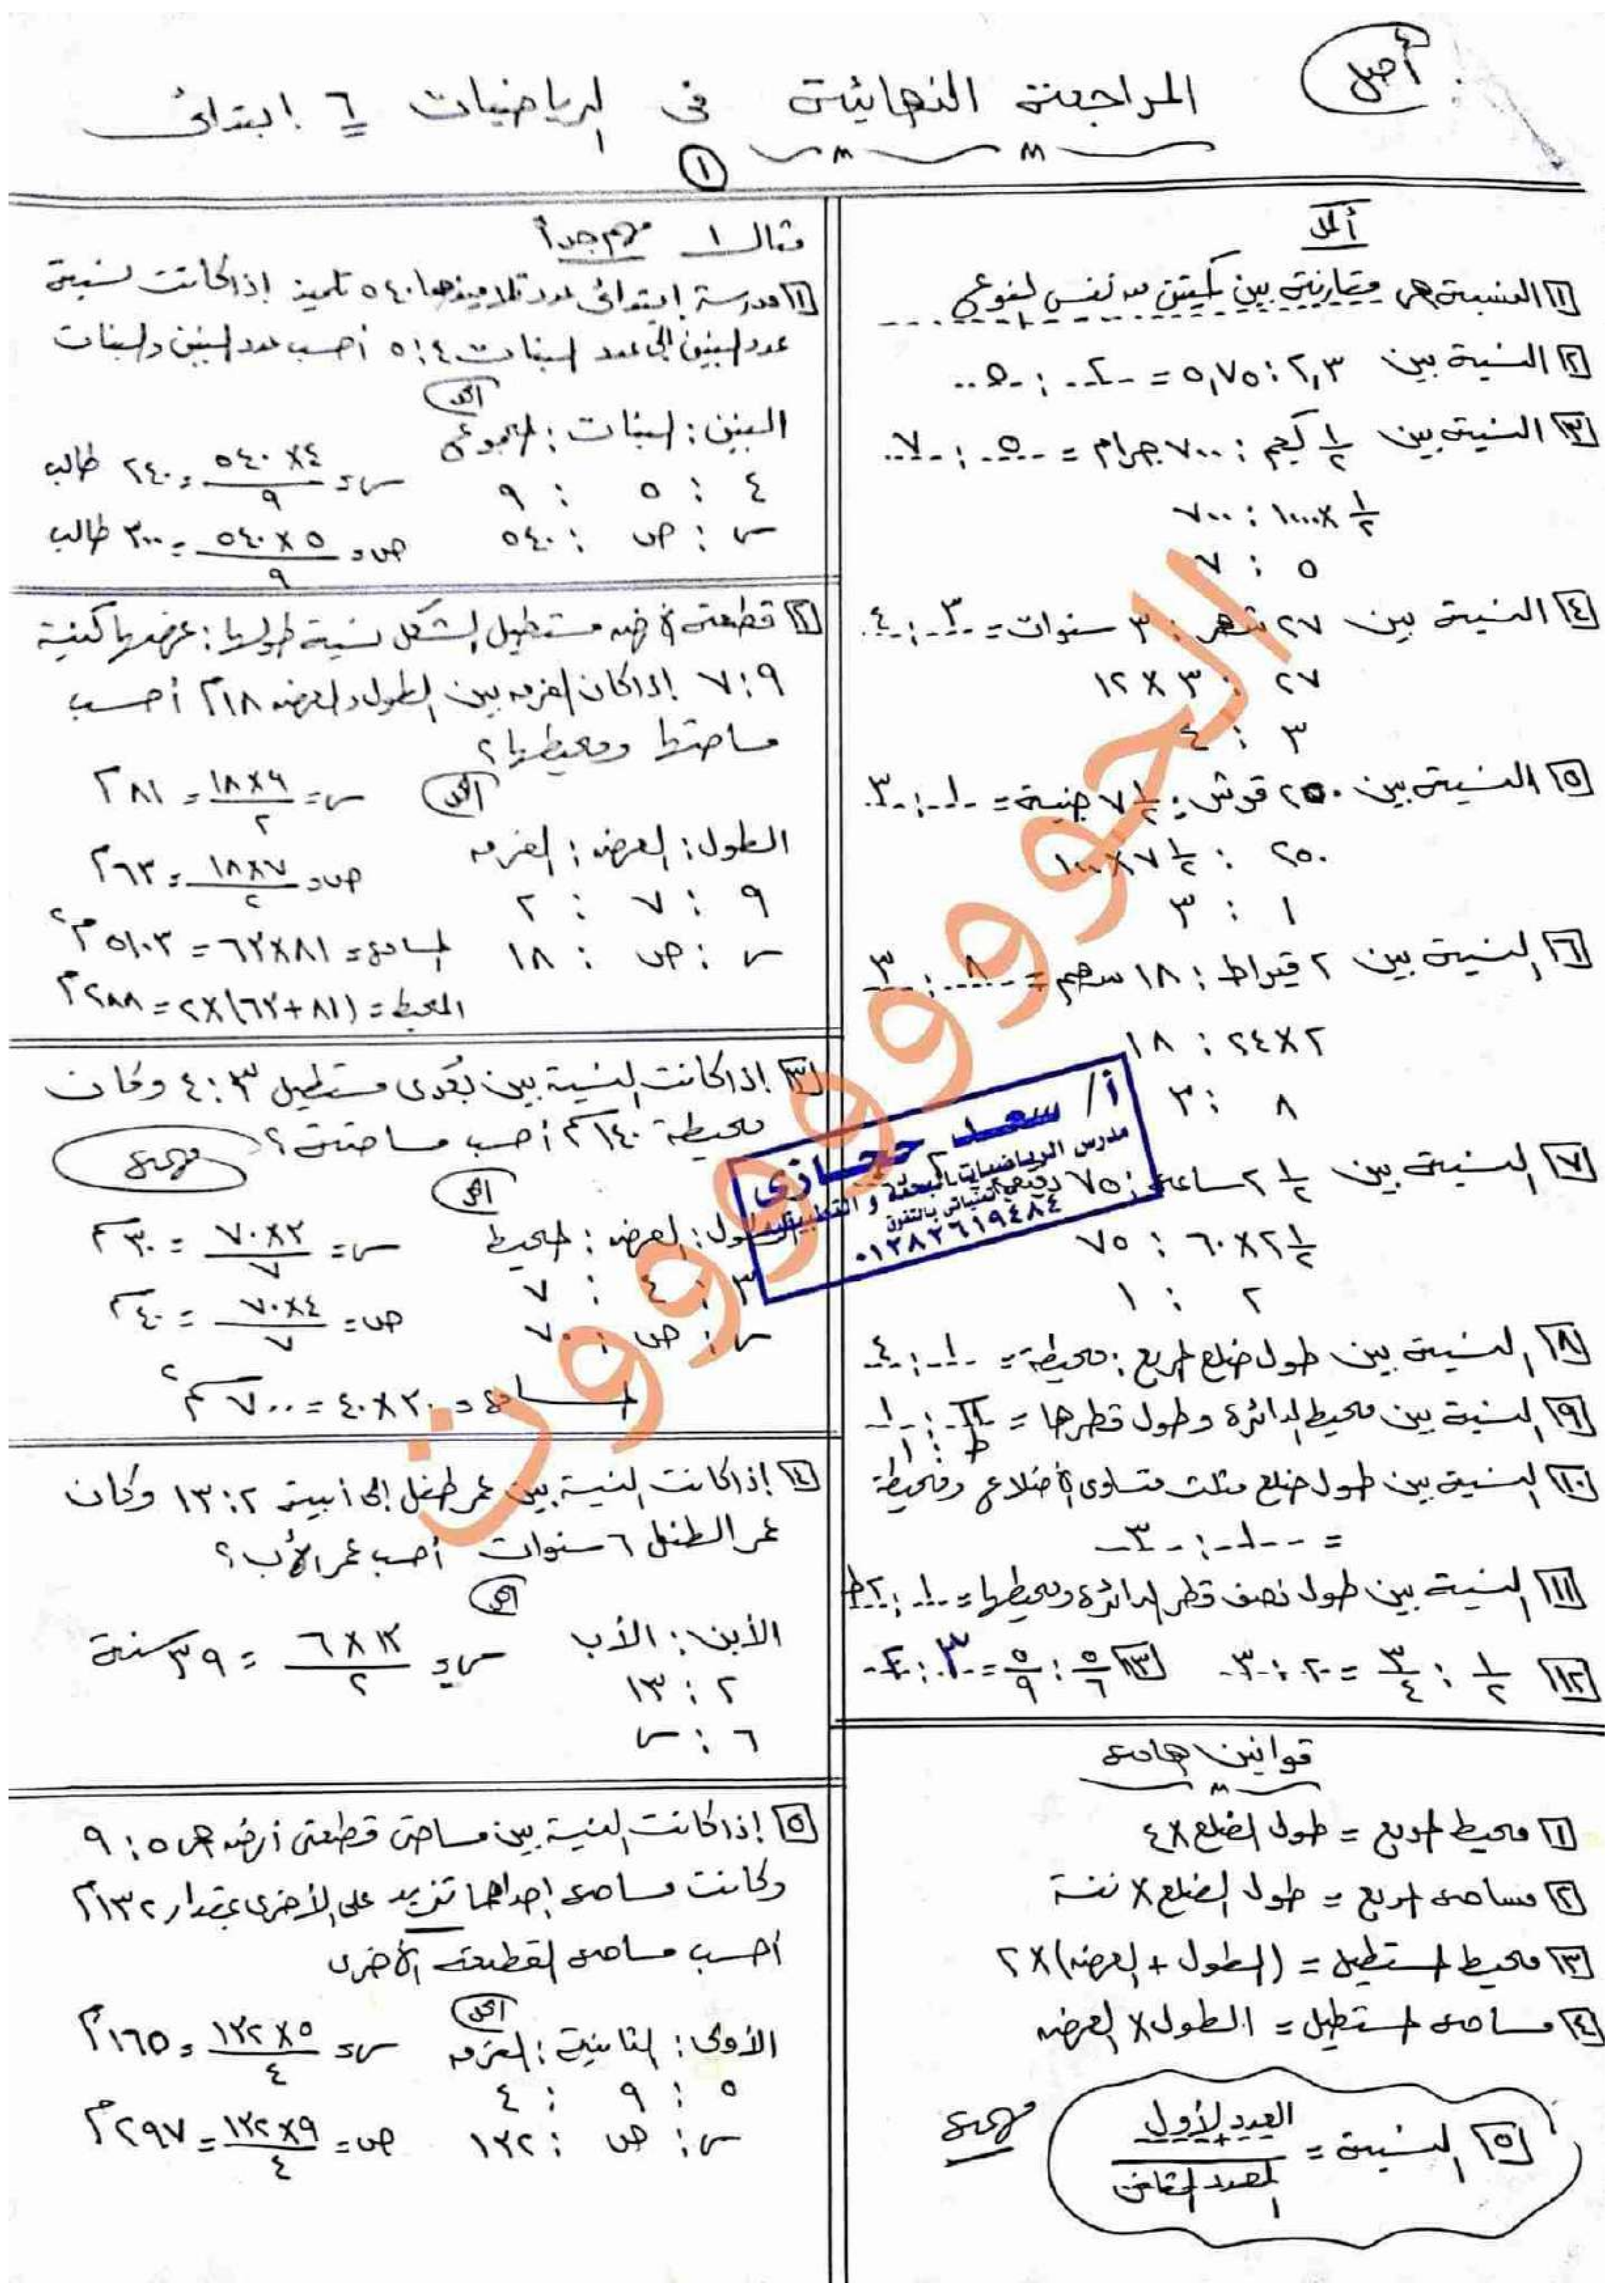 أصل
المراجعة النهائية في الرياضيات ٦ ابتدائى
١
أكمل
١ النسبة هى مقارنة بين كميتين من نفس النوع
٢ النسبة بين ٢,٣ : ٥,٧٥ = ٢ : ٥
٣ النسبة بين ١/٢ كجم : ٧٠٠ جرام = ٥ : ٧
١/٢ × ١٠٠٠ : ٧٠٠
٥ : ٧
٤ النسبة بين ٢٧ شهر : ٣ سنوات = ٣ : ٤
٢٧ : ٣ × ١٢
٣ : ٤
٥ النسبة بين ٢٥٠ قرش : ٧ ١/٢ جنية = ١ : ٣
٢٥٠ : ٧ ١/٢ × ١٠٠
١ : ٣
٦ النسبة بين ٢ قيراط : ١٨ سهم = ٨ : ٣
٢ × ٢٤ : ١٨
٨ : ٣
٧ النسبة بين ٢ ١/٢ ساعة : ٧٥
٢ ١/٢ × ٦٠ : ٧٥
٢ : ١
٨ النسبة بين طول ضلع المربع : محيطة = ١ : ٤
٩ النسبة بين محيط الدائرة وطول قطرها = π : ١
ط : ١
١٠ النسبة بين طول ضلع مثلث متساوى الأضلاع ومحيطة
= ١ : ٣
١١ النسبة بين طول نصف قطر الدائرة ومحيطها = ١ : ٢ط
١٢ ١/٢ : ٣/٤ = ٢ : ٣ ١٣ ٥/٦ : ٥/٩ = ٣ : ٢
قوانين هامة
١ محيط المربع = طول الضلع × ٤
٢ مساحة المربع = طول الضلع × نفسة
٣ محيط المستطيل = (الطول + العرض) × ٢
٤ مساحة المستطيل = الطول × العرض
٥ النسبة = العدد الأول / العدد الثانى مهمة
مثال ١ مهم جداً
١ مدرسة إبتدائى عدد تلاميذها ٥٤٠ تلميذ إذا كانت نسبة
عدد البنين إلى عدد البنات ٤ : ٥ أحسب عدد البنين والبنات
الحل
البنين : البنات : المجموع س = ٤ × ٥٤٠ / ٩ = ٢٤٠ طالب
٤ : ٥ : ٩
س : ص : ٥٤٠ ص = ٥ × ٥٤٠ / ٩ = ٣٠٠ طالب
٢ قطعة أرض مستطيل الشكل نسبة طولها : عرضها كنسبة
٩ : ٧ إذا كان الفرق بين الطول والعرض ١٨م أحسب
مساحتها ومحيطها؟
الحل س = ٩ × ١٨ / ٢ = ٨١م
الطول : العرض : الفرق ص = ٧ × ١٨ / ٢ = ٦٣م
٩ : ٧ : ٢
س : ص : ١٨ المساحة = ٨١ × ٦٣ = ٥١٠٣م٢
المحيط = (٨١ + ٦٣) × ٢ = ٢٨٨م
٣ إذا كانت النسبة بين بعدى مستطيل ٣ : ٤ وكان
محيطة ١٤٠سم أحسب مساحتة؟ مهمة
الحل
الطول : العرض : المحيط س = ٣ × ٧٠ / ٧ = ٣٠سم
٣ : ٤ : ٧
س : ص : ٧٠ ص = ٤ × ٧٠ / ٧ = ٤٠سم
المساحة = ٣٠ × ٤٠ = ٧٠٠سم٢
٤ إذا كانت النسبة بين عمر طفل إلى أبية ٢ : ١٣ وكان
عمر الطفل ٦ سنوات أحسب عمر الأب؟
الحل
الأبن : الأب س = ١٣ × ٦ / ٢ = ٣٩ سنة
٢ : ١٣
٦ : س
٥ إذا كانت النسبة بين مساحتى قطعتى أرض هى ٥ : ٩
وكانت مساحة إحداهما تزيد على الأخرى بمقدار ١٣٢م
أحسب مساحة القطعة الأخرى
الحل
الأولى : الثانية : الفرق س = ٥ × ١٣٢ / ٤ = ١٦٥م
٥ : ٩ : ٤
س : ص : ١٣٢ ص = ٩ × ١٣٢ / ٤ = ٢٩٧م
أ/ سعد حجازى
مدرس الرياضيات البحتة و التطبيقية
٠١٢٨٢٦١٩٤٨٤